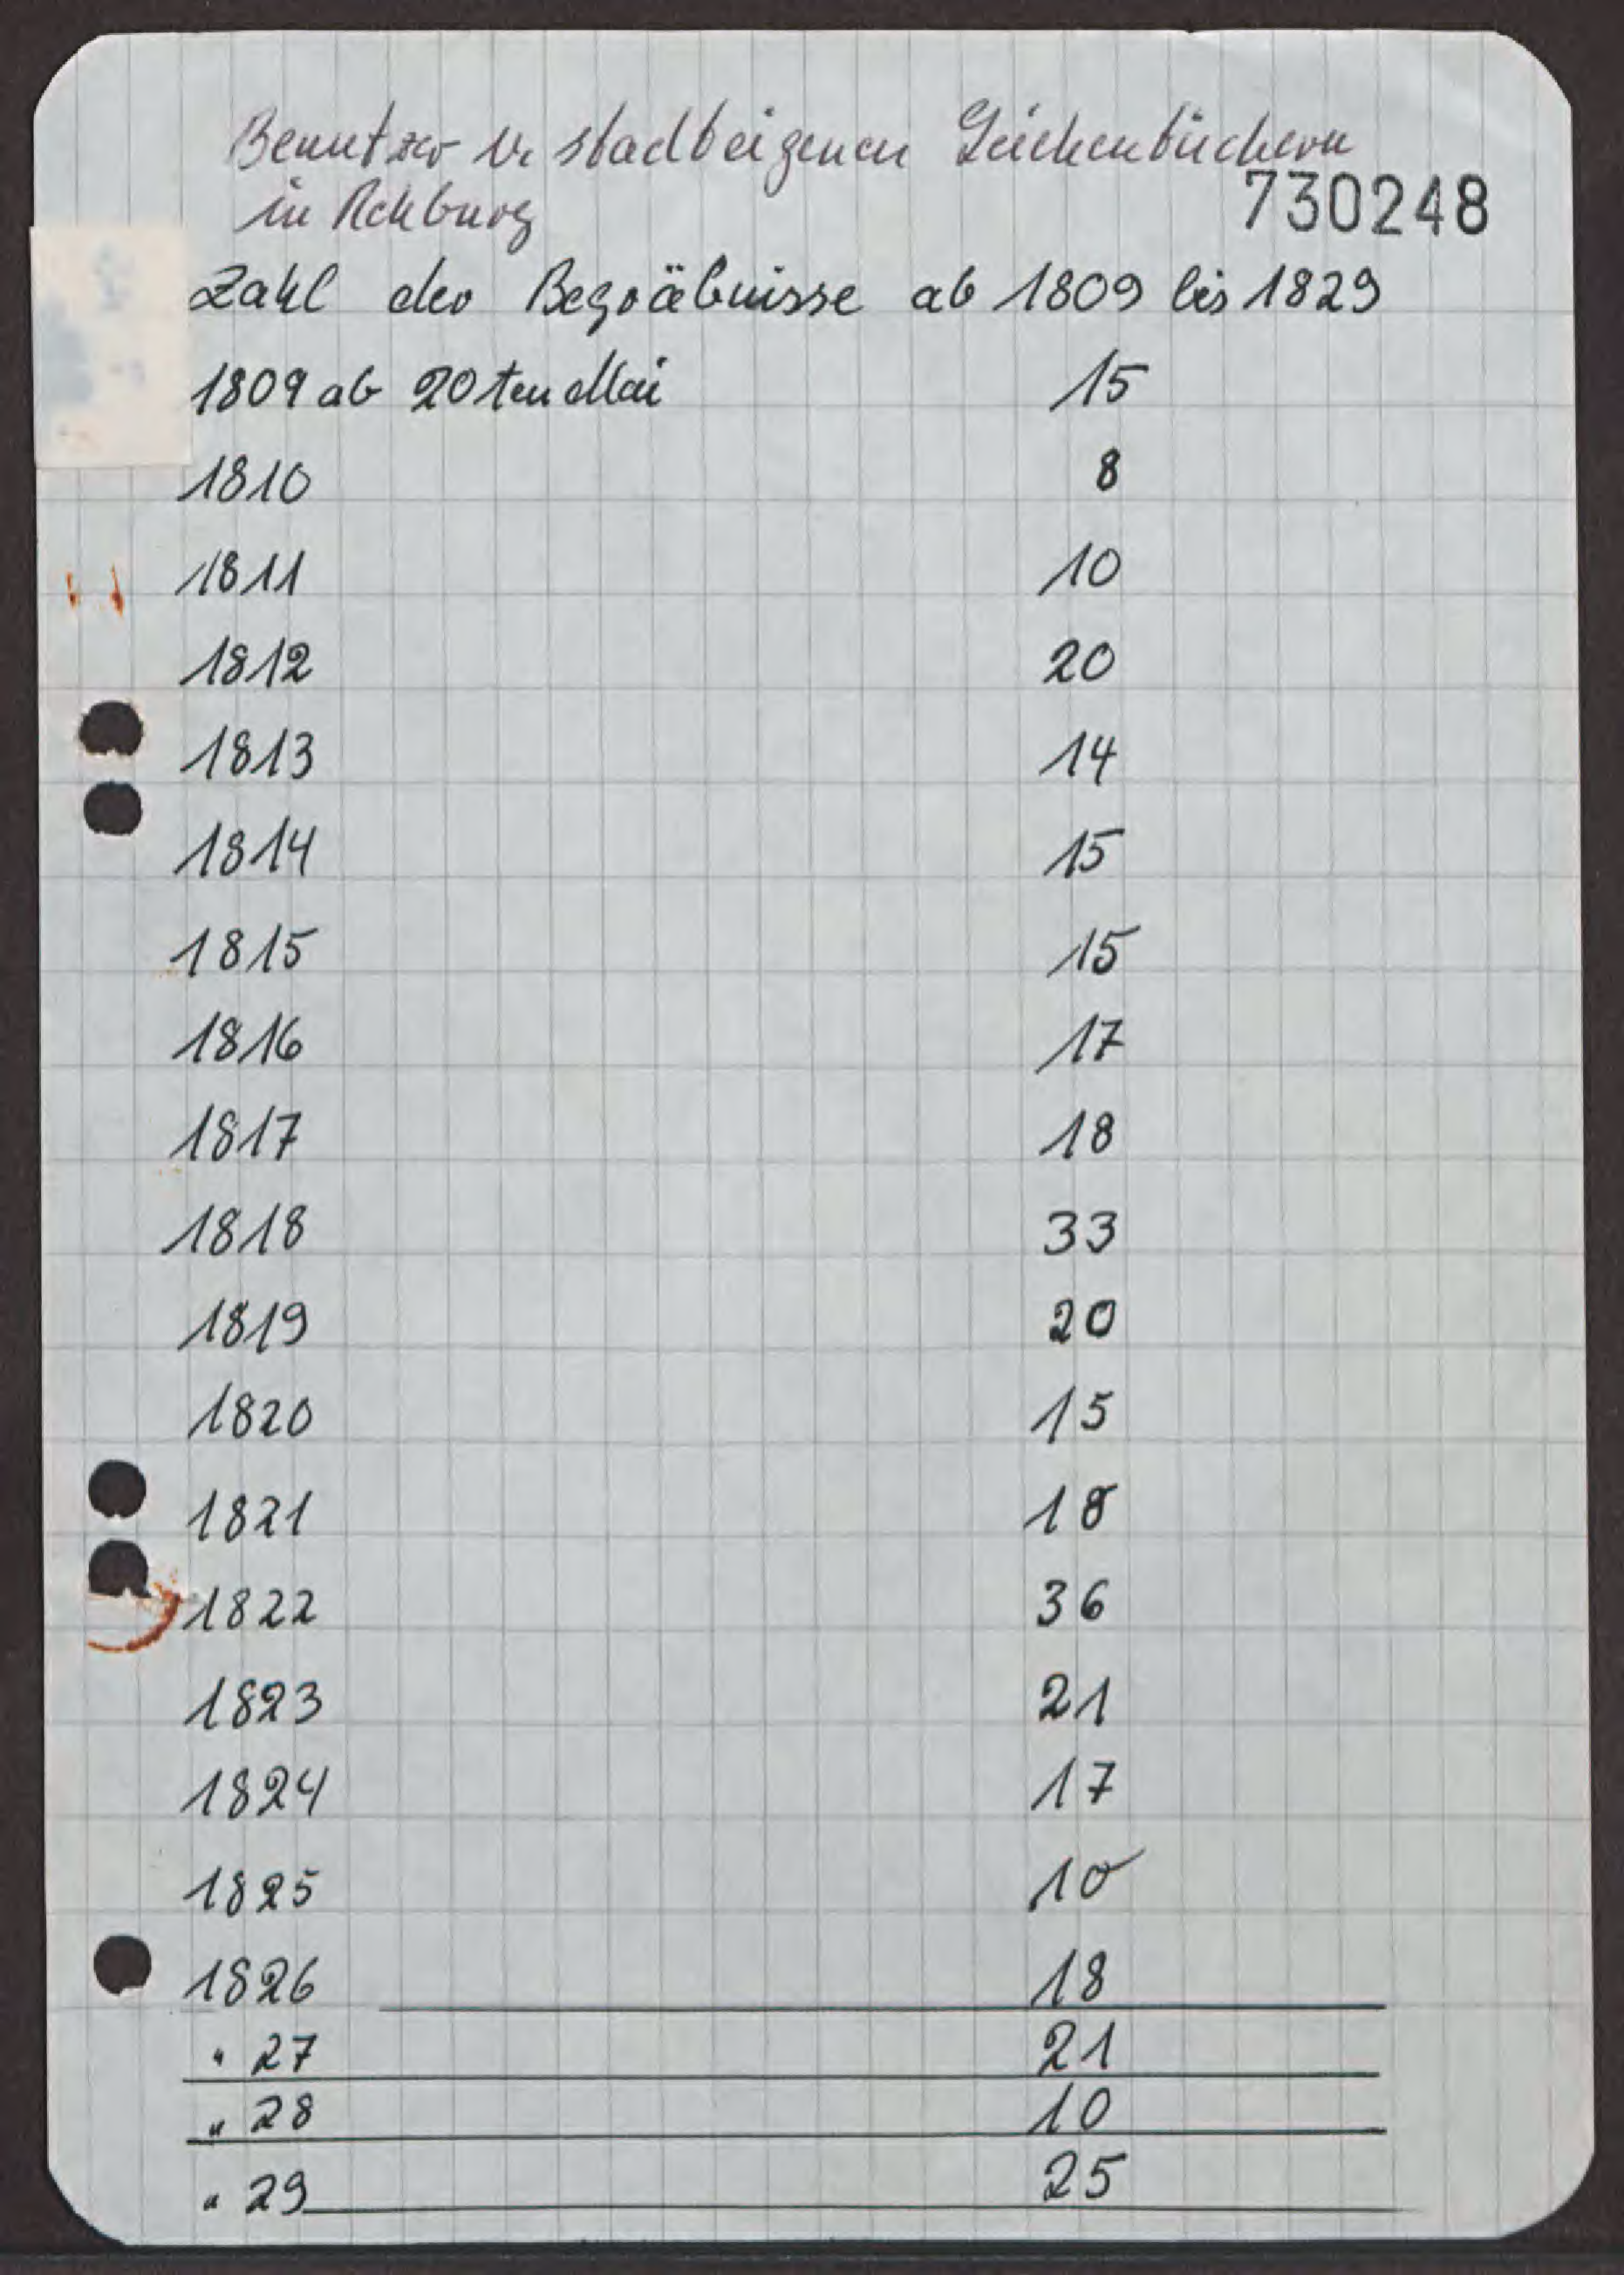 Benutzer v. stadteigenen Leichenbüchern
in Rehburg
730248
Zahl der Begräbnisse ab 1809 bis 1829
1809 ab 20ten Mai 15
1810 8
1811 10
1812 20
1813 14
1814 15
1815 15
1816 17
1817 18
1818 33
1819 20
1820 15
1821 18
1822 36
1823 21
1824 17
1825 10
1826 18
" 27 21
" 28 10
" 29 25